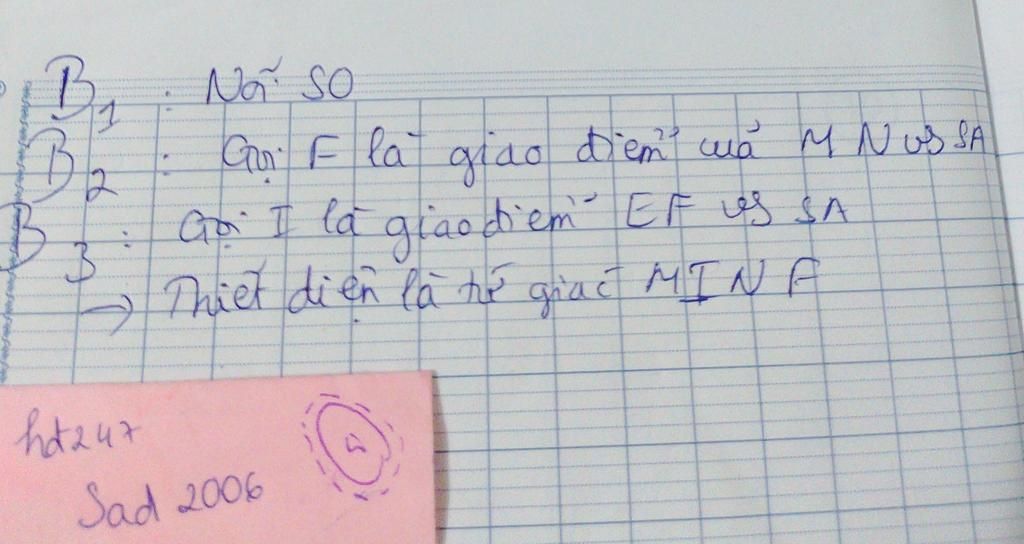 B1 : Nối SO
B2 : Gọi F là giao điểm của MN vs SA
B3 : Gọi I là giao điểm EF vs SA
→ Thiết diện là tứ giác MINF
hd247
Sad 2006